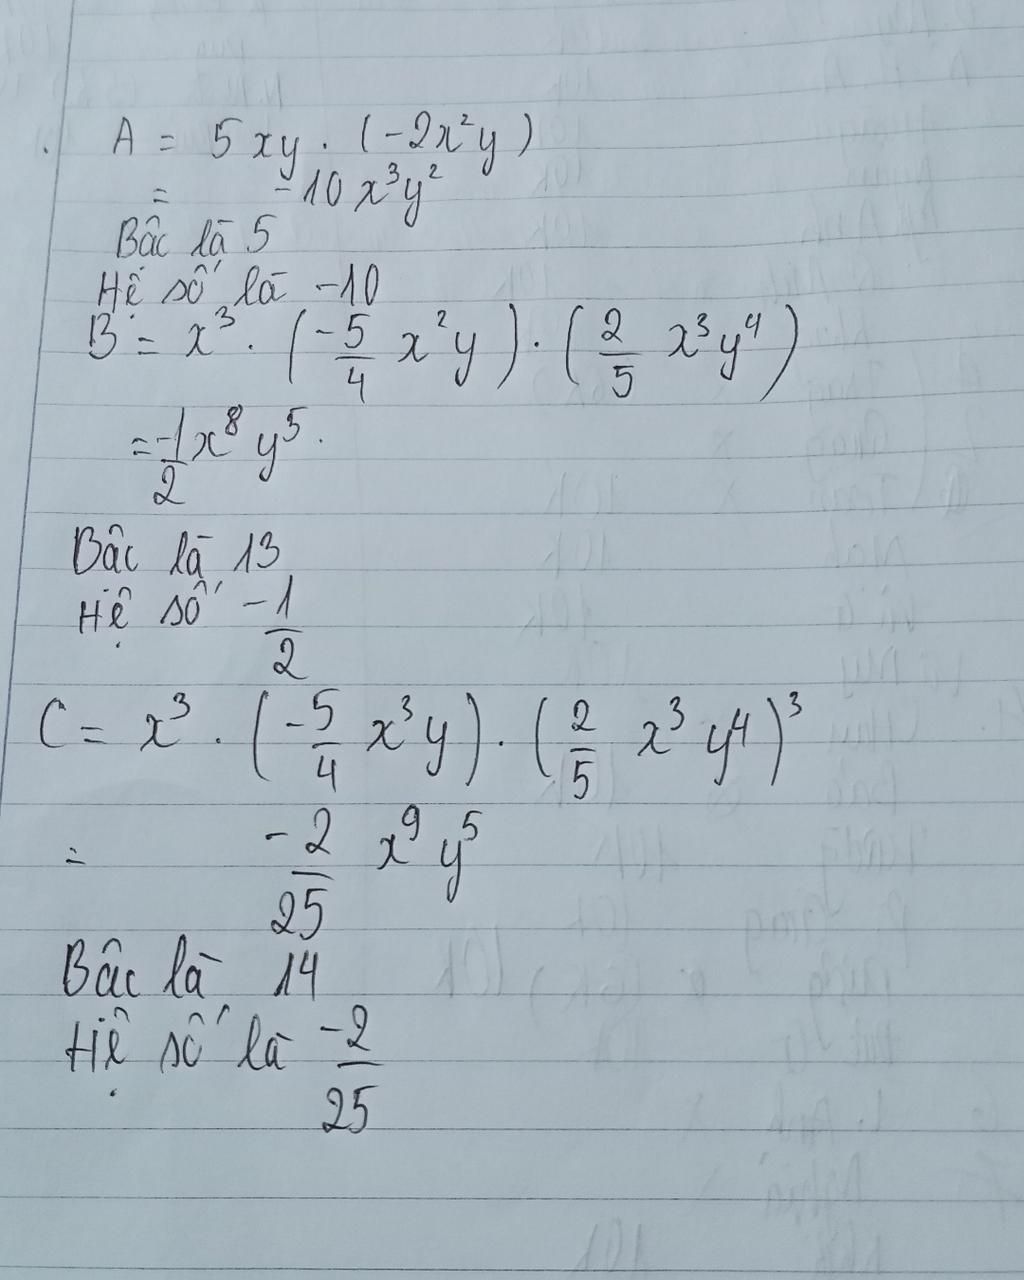 A = 5xy . (-2x²y)
= -10x³y²
Bậc là 5
Hệ số là -10
B = x³ . (-5/4 x²y) . (2/5 x³y⁴)
= -1/2 x⁸ y⁵.
Bậc là 13
Hệ số -1/2
C = x³ . (-5/4 x³y) . (2/5 x³y⁴)³
= -2/25 x⁹ y⁵
Bậc là 14
Hệ số là -2/25